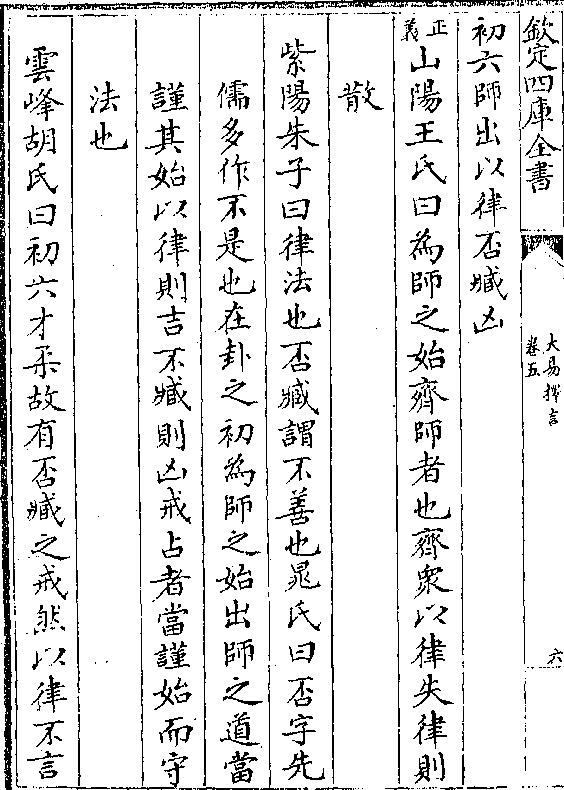 欽定四庫全書
大易擇言
卷五
六
初六師出以律否臧凶
正義
山陽王氏曰為師之始齊師者也齊衆以律失律則
散
紫陽朱子曰律法也否臧謂不善也晁氏曰否字先
儒多作不是也在卦之初為師之始出師之道當
謹其始以律則吉不臧則凶戒占者當謹始而守
法也
雲峰胡氏曰初六才柔故有否臧之戒然以律不言